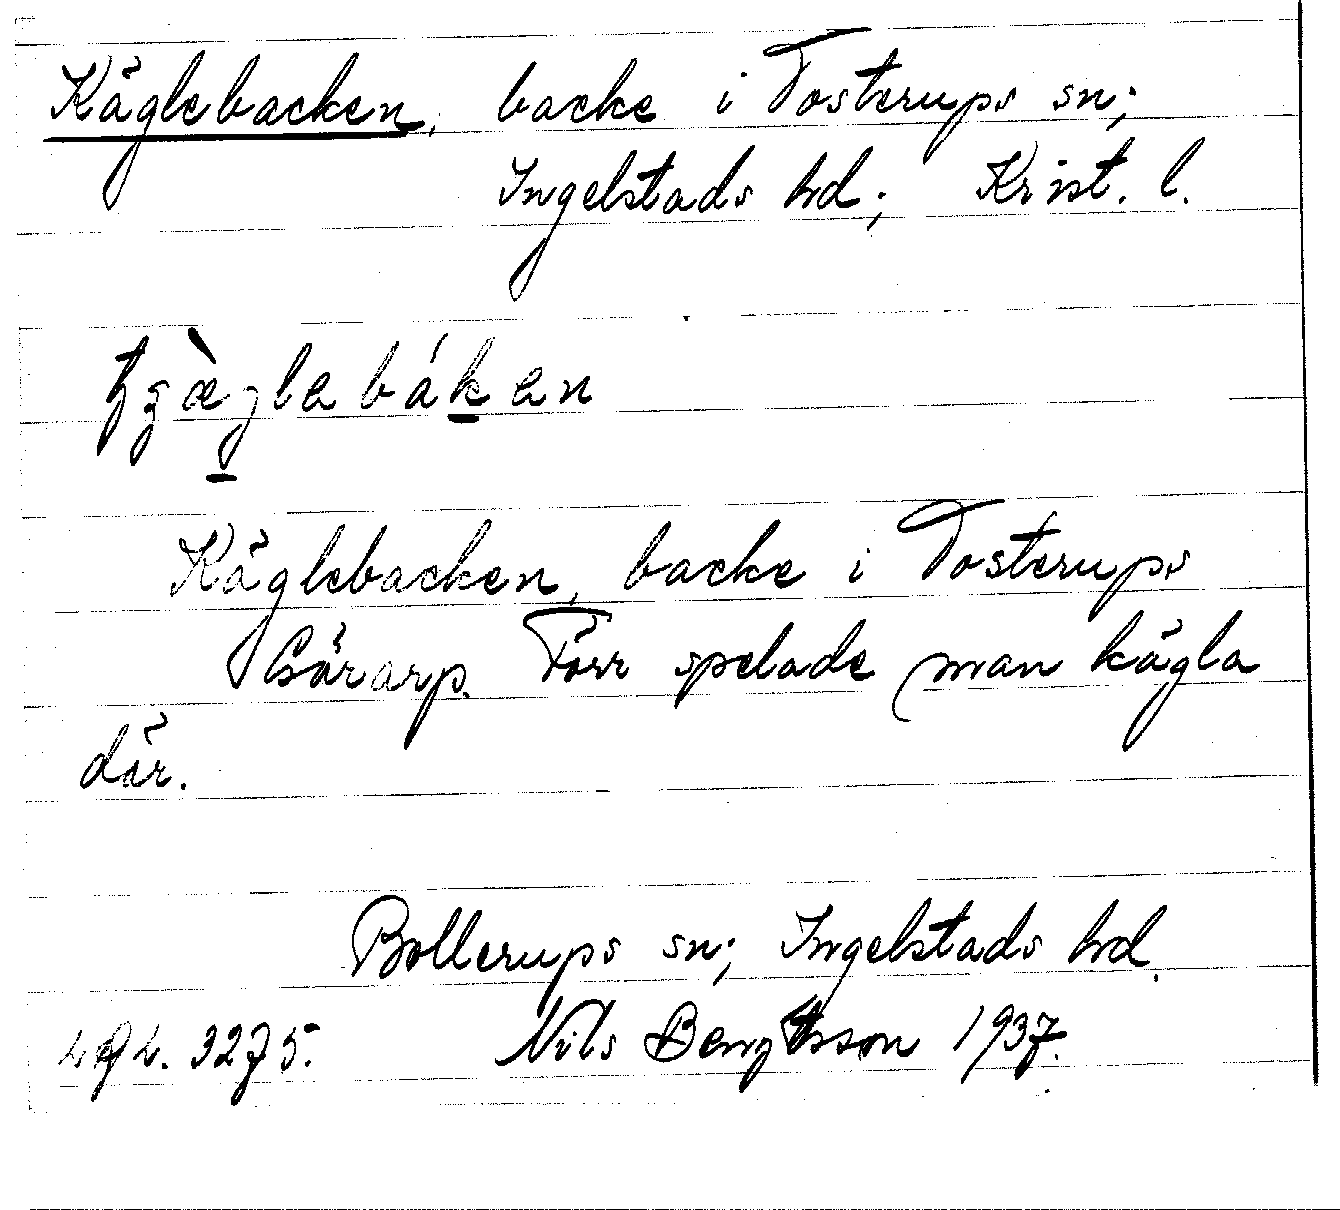 Käglebacken, backe i Tosterups sn;
Ingelstads hd; Krist. l.
Käglebacken, backe i Tosterups
Gärarp. Förr spelade man kägla
där.
Bollerups sn; Ingelstads hd.
3275. Nils Bengtsson 1937.